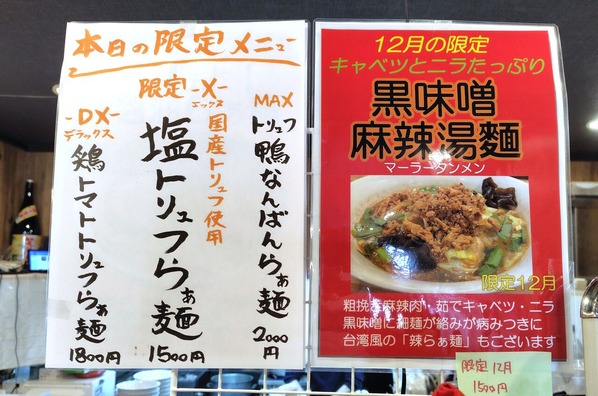 本日の限定メニュー
MAX
トリュフ鴨なんばんらぁ麺
2000円
限定-X-
エックス
国産トリュフ使用
塩トリュフらぁ麺
1500円
-DX-
デラックス
鶏トマトトリュフらぁ麺
1800円
12月の限定
キャベツとニラたっぷり
黒味噌
麻辣湯麺
マーラータンメン
限定12月
粗挽き麻辣肉・茹でキャベツ・ニラ
黒味噌に細麺が絡みが病みつきに
台湾風の「辣らぁ麺」もございます
限定12月
1500円